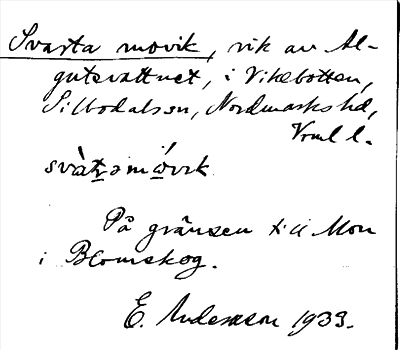 Svarta movik, vik av Al-
gutsvattnet, i Vikebotten,
Silbodals sn, Nordmarks hd,
Vrml l.
På gränsen till Mon
i Blomskog.
E. Andersson 1933.